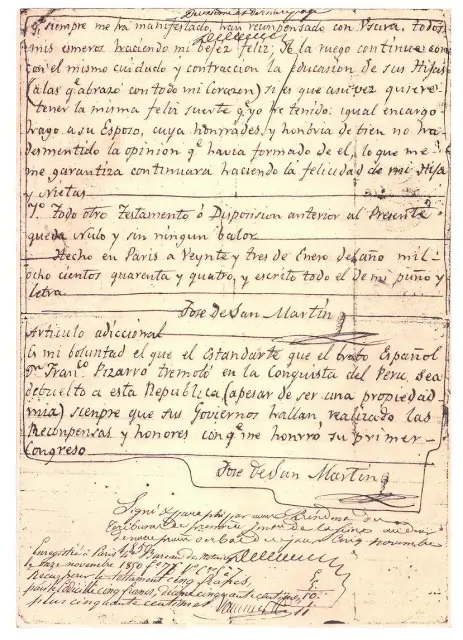 q.e siempre me ha manifestado, han recompensado con Usura, todos
mis esmeros haciendo mi bejez feliz. Yo la ruego continue con
con el mismo cuidado y contraccion la educasion de sus Hijas
(à las q.e abrazo con todo mi Corazon) si es que asu vez quiere
tener la misma feliz suerte q.e yo he tenido: igual encargo
hago a su Esposo, cuya honrrades, y hombria de bien no ha
desmentido la opinion q.e havia formado de el, lo que me
me garantiza continuara haciendo la felicidad de mi Hija
y Nietas
7º Todo otro Testamento ó Disposision anterior al Presente
queda Nulo y sin ningun balor
Hecho en Paris a Veynte y tres de Enero del año mil
ocho cientos quarenta y quatro, y escrito todo el de mi puño y
letra.
Jose de San Martin
Articulo adiccional
Es mi boluntad el que el Estandarte que el brabo Español
Dn. Fran.co Pizarro tremoló en la Conquista del Peru, sea
debuelto a esta Republica (apesar de ser una propiedad
mia) sienpre que sus Goviernos hallan realizado las
Reconpensas y honores con q.e me honrró su primer
Congreso
Jose de San Martin
Signé et paraphé par nous Président du
tribunal de première
novembre
Enregistré à Paris
le 1850
Reçu pour le testament cinq francs,
pour le codicille cinq francs, décime cinquante centimes
plus cinquante centimes